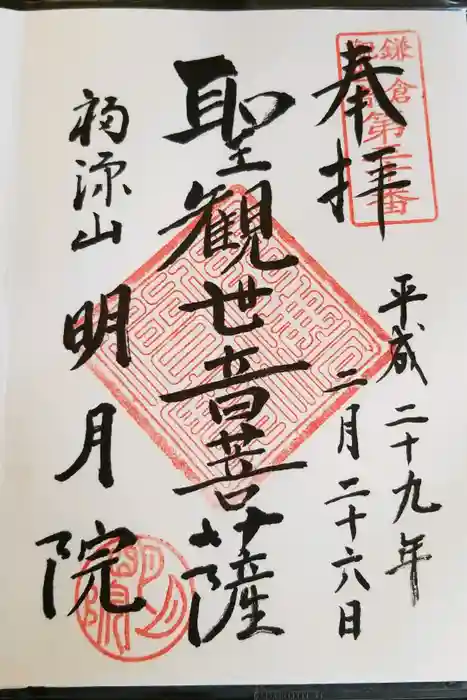 奉拝
平成二十九年
二月二十六日
聖観世音菩薩
福源山
明月院